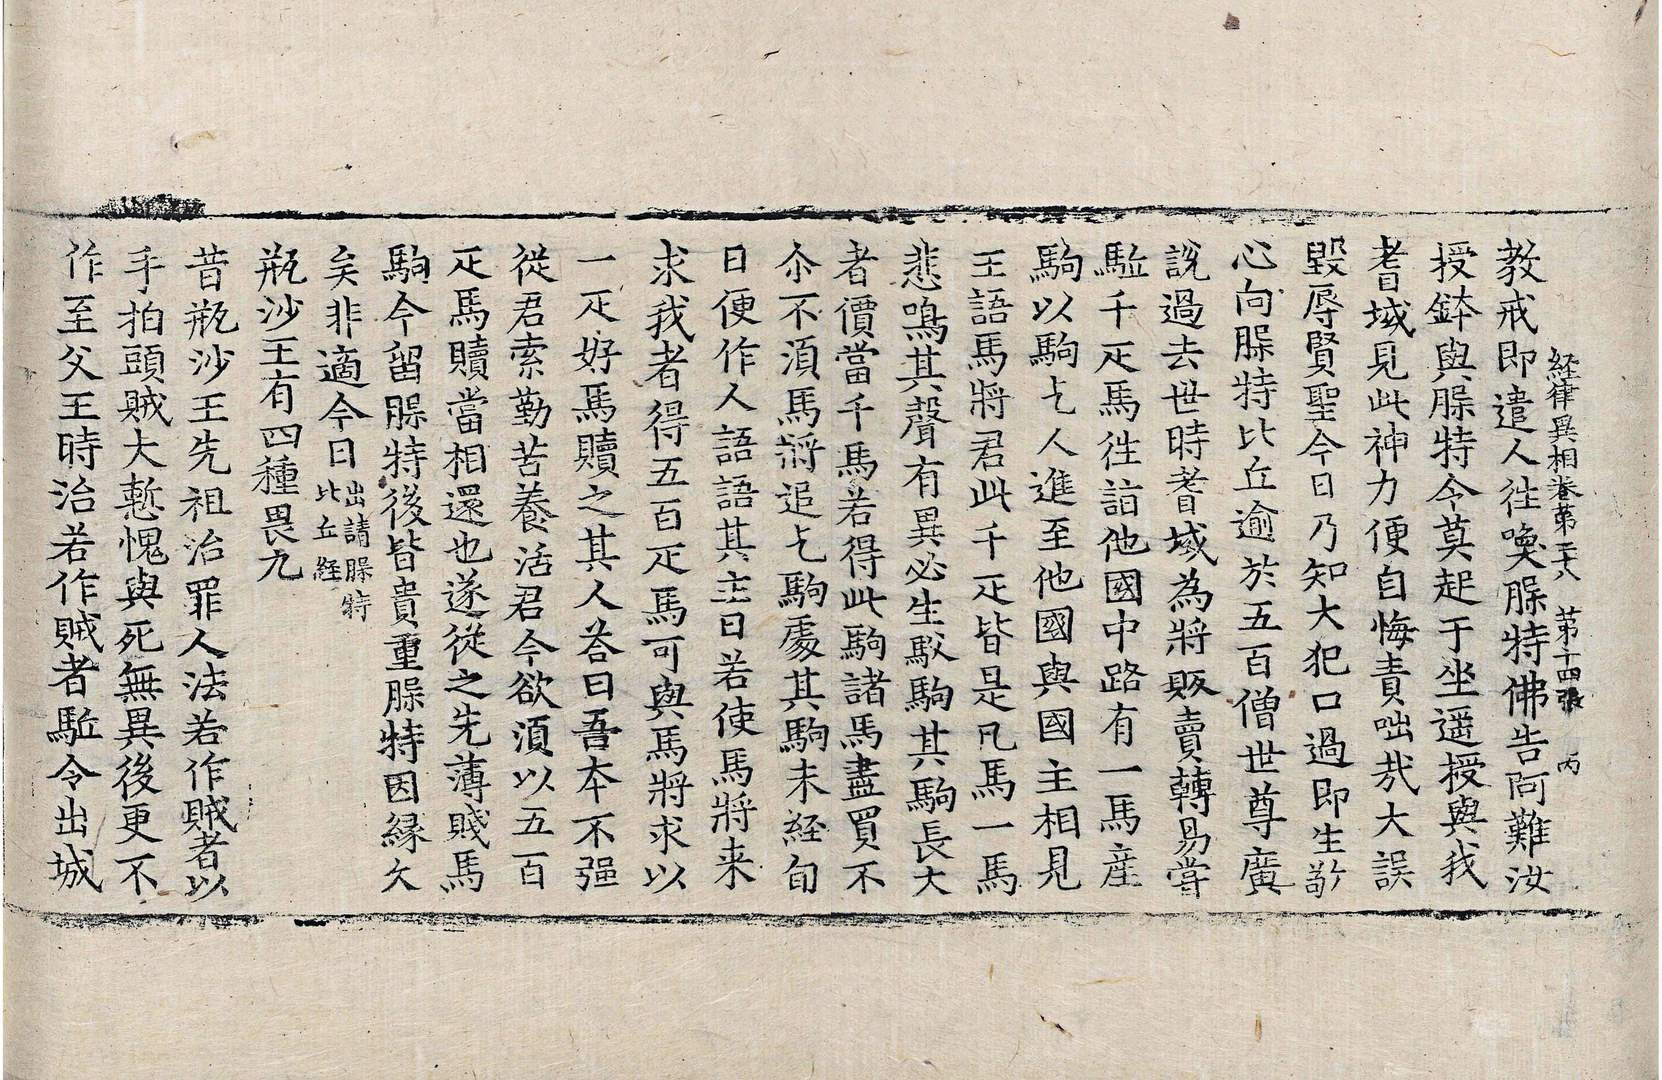 経律異相巻苐二十八 苐十四張 丙
教戒即遣人往喚䐗特佛告阿難汝
授鉢與䐗特令莫起于坐遥授與我
耆域見此神力便自悔責咄㢤大誤
毀辱賢聖今日乃知大犯口過即生敬
心向䐗特比丘逾於五百僧世尊廣
說過去世時耆域為將販賣轉易甞
駈千疋馬往詣他國中路有一馬産
駒以駒乞人進至他國與國主相見
王語馬將君此千疋皆是凡馬一馬
悲鳴其聲有異必生駁駒其駒長大
者價當千馬若得此駒諸馬盡買不
尒不湏馬將追乞駒䖏其駒未経旬
日便作人語語其主曰若使馬將来
求我者得五百疋馬可與馬將求以
一疋好馬贖之其人荅曰吾本不强
従君索勤苦養活君今欲湏以五百
疋馬贖當相還也遂従之先薄賤馬
駒今留䐗特後皆貴重䐗特因縁久
矣非適今日出請䐗特比丘経
瓶沙王有四種畏九
昔瓶沙王先祖治罪人法若作賊者以
手拍頭賊大慙愧與死無異後更不
作至父王時治若作賊者駈令出城